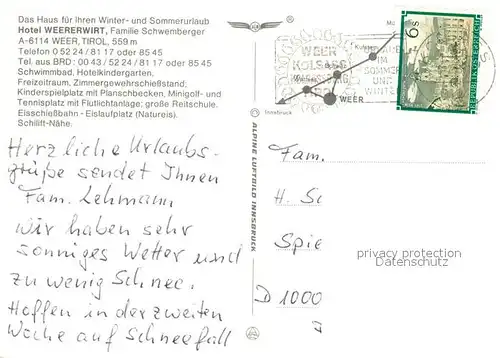 Das Haus für Ihren Winter- und Sommerurlaub
Hotel WEERERWIRT, Familie Schwemberger
A-6114 WEER, TIROL, 559 m
Telefon 0 52 24 / 81 17 oder 85 45
Tel. aus BRD: 00 43 / 52 24 / 81 17 oder 85 45
Schwimmbad, Hotelkindergarten.
Freizeitraum, Zimmergewehrschießstand;
Kinderspielplatz mit Planschbecken, Minigolf- und
Tennisplatz mit Flutlichtanlage; große Reitschule.
Eisschießbahn - Eislaufplatz (Natureis).
Schilift-Nähe.
Herzliche Urlaubs-
grüße sendet Ihnen
Fam. Lehmann
wir haben sehr
sonniges Wetter und
zu wenig Schnee.
Hoffen in der zweiten
Woche auf Schneefall
ALPINE LUFTBILD INNSBRUCK
WEER
KOLSASS
IM
SOMMER
UND
WINTER
WEER
Innsbruck
6 S
REPUBLIK ÖSTERREICH
Fam.
H. Sc
Spie
D 1000
privacy protection
Datenschutz